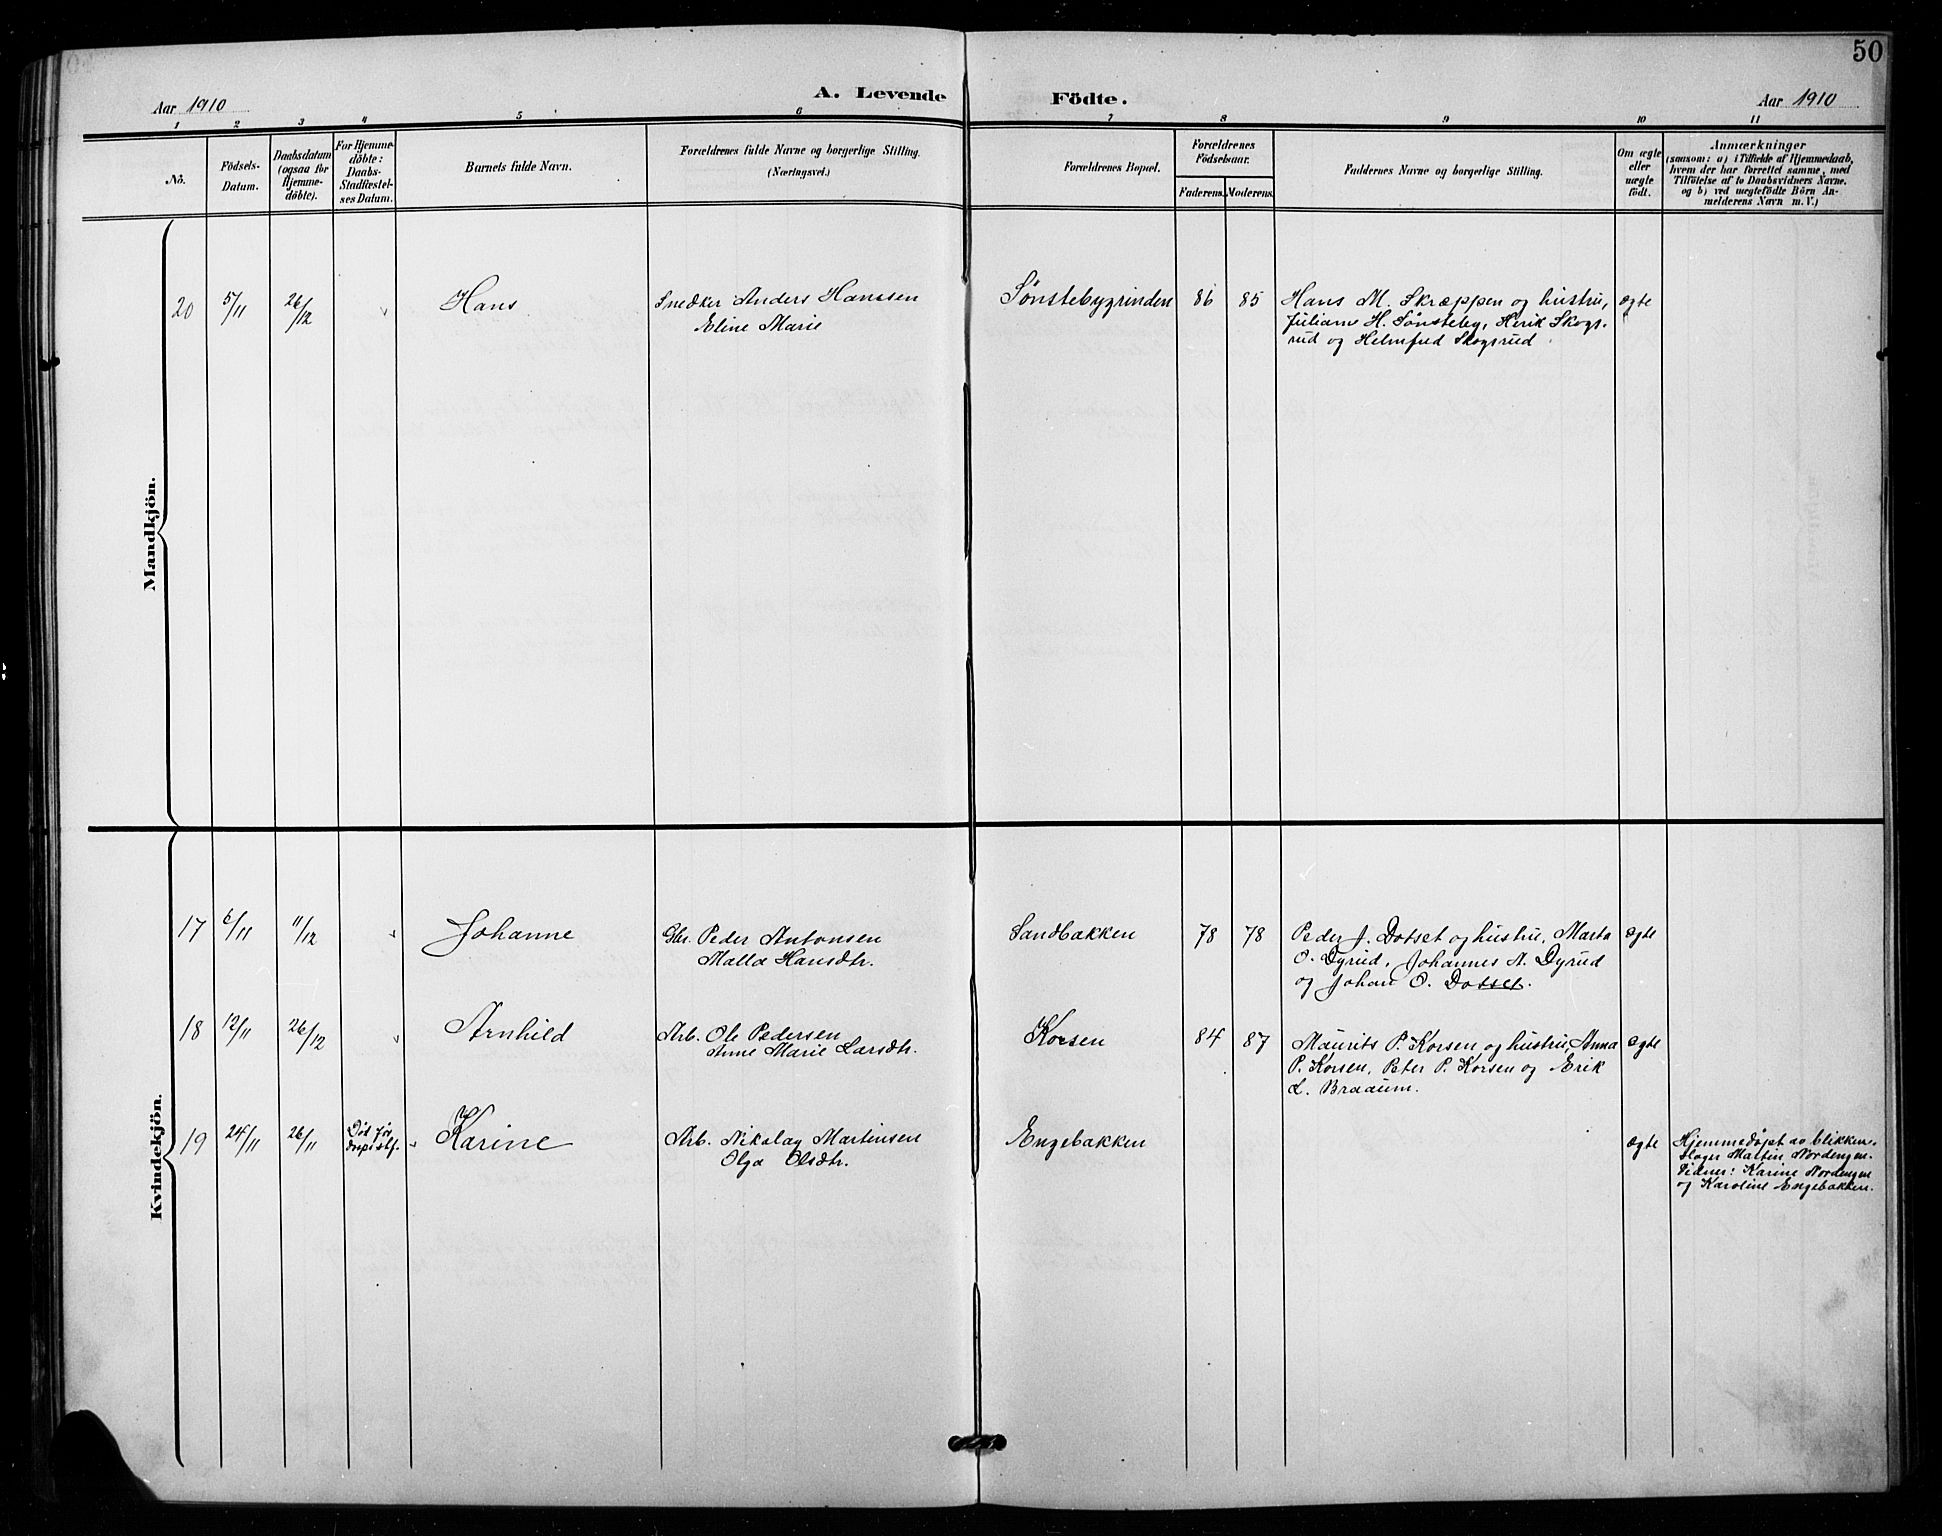 50
Aar 1910
A. Levende Födte.
Aar 1910
1 2 3 4 5 6 7 8 9 10 11
No.
Födsels-
Datum.
Daabsdatum
(ogsaa for
Hjemme-
döbte).
For Hjemme-
döbte:
Daabs-
Stadfæstel-
ses Datum.
Barnets fulde Navn.
Forældrenes fulde Navne og borgerlige Stilling.
(Næringsvei.)
Forældrenes Bopæl.
Forældrenes
Födselsaar.
Faderens. Moderens.
Faddernes Navne og borgerlige Stilling.
Om ægte
eller
uægte
født.
Anmærkninger
(saasom: a) i Tilfælde af Hjemmedaab,
hvem der har forrettet samme, med
Tilföielse af to Daabsvidners Navne,
og b) ved uægtefödte Börn An-
melderens Navn m. V.)
Mandkjön.
20 5/11 26/12 Hans
Snedker Anders Hanssen
Eline Marie
Sønstebygrinden 86 85
Hans M. Skræppen og hustru,
Juliane H. Sønsteby, Henrik Skogs-
rud og Helmfred Skogsrud
ægte
Kvindekjön.
17 6/11 11/12 Johanne
Gbr. Peder Antonsen
Malla Hansdtr.
Sandbakken 78 78
Peder J. Dotset og hustru, Marta
O. Dyrud, Johannes A. Dyrud
og Johan O. Dotset.
ægte
18 12/11 26/12 Arnhild
Arb. Ole Pedersen
Anne Marie Larsdtr.
Korsen 84 87
Maurits P. Korsen og hustru, Anna
P. Korsen, Peter P. Korsen og Erik
L. Braaum.
ægte
19 24/11 26/11 Død før
Karine
Arb. Nikolay Martinsen
Olga Olsdtr.
Engebakken
ægte
Hjemmedøpt av blikken-
slager Martin Nordengen.
Vidner: Karine Nordengen
og Karoline Engebakken.